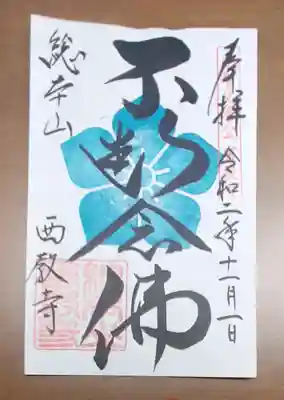 奉拝 令和二年十一月一日
不断念佛
総本山
西教寺